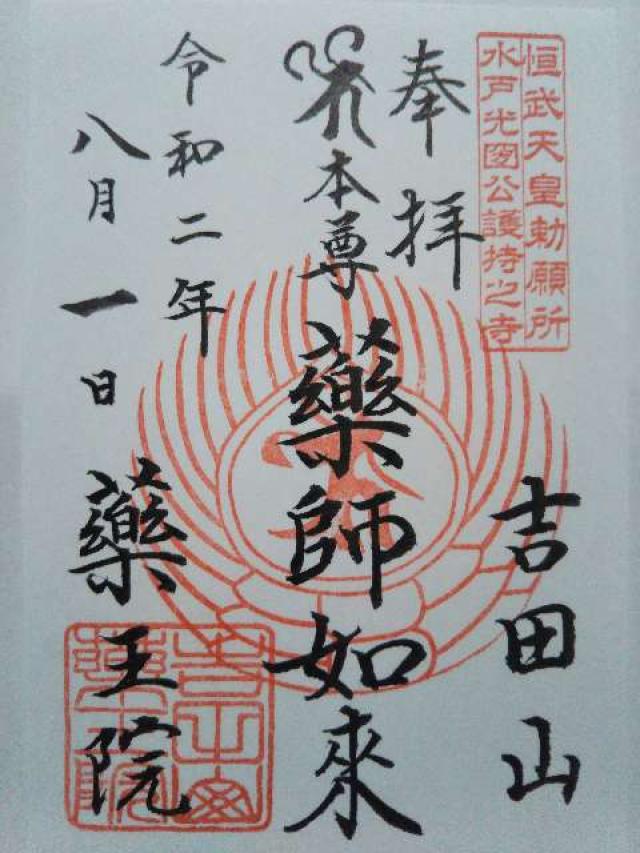 恒武天皇勅願所
水戸光圀公護持之寺
奉拝
吉田山
本尊
藥師如來
令和二年
八月一日
藥王院